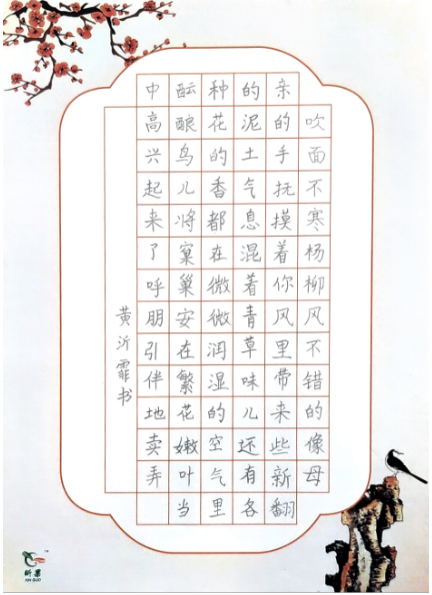 吹面不寒杨柳风不错的像母
亲的手抚摸着你风里带来些新翻
的泥土气息混着青草味儿还有各
种花的香都在微微润湿的空气里
酝酿鸟儿将窠巢安在繁花嫩叶当
中高兴起来了呼朋引伴地卖弄
黄沂霏书
昕果
XIN GUO